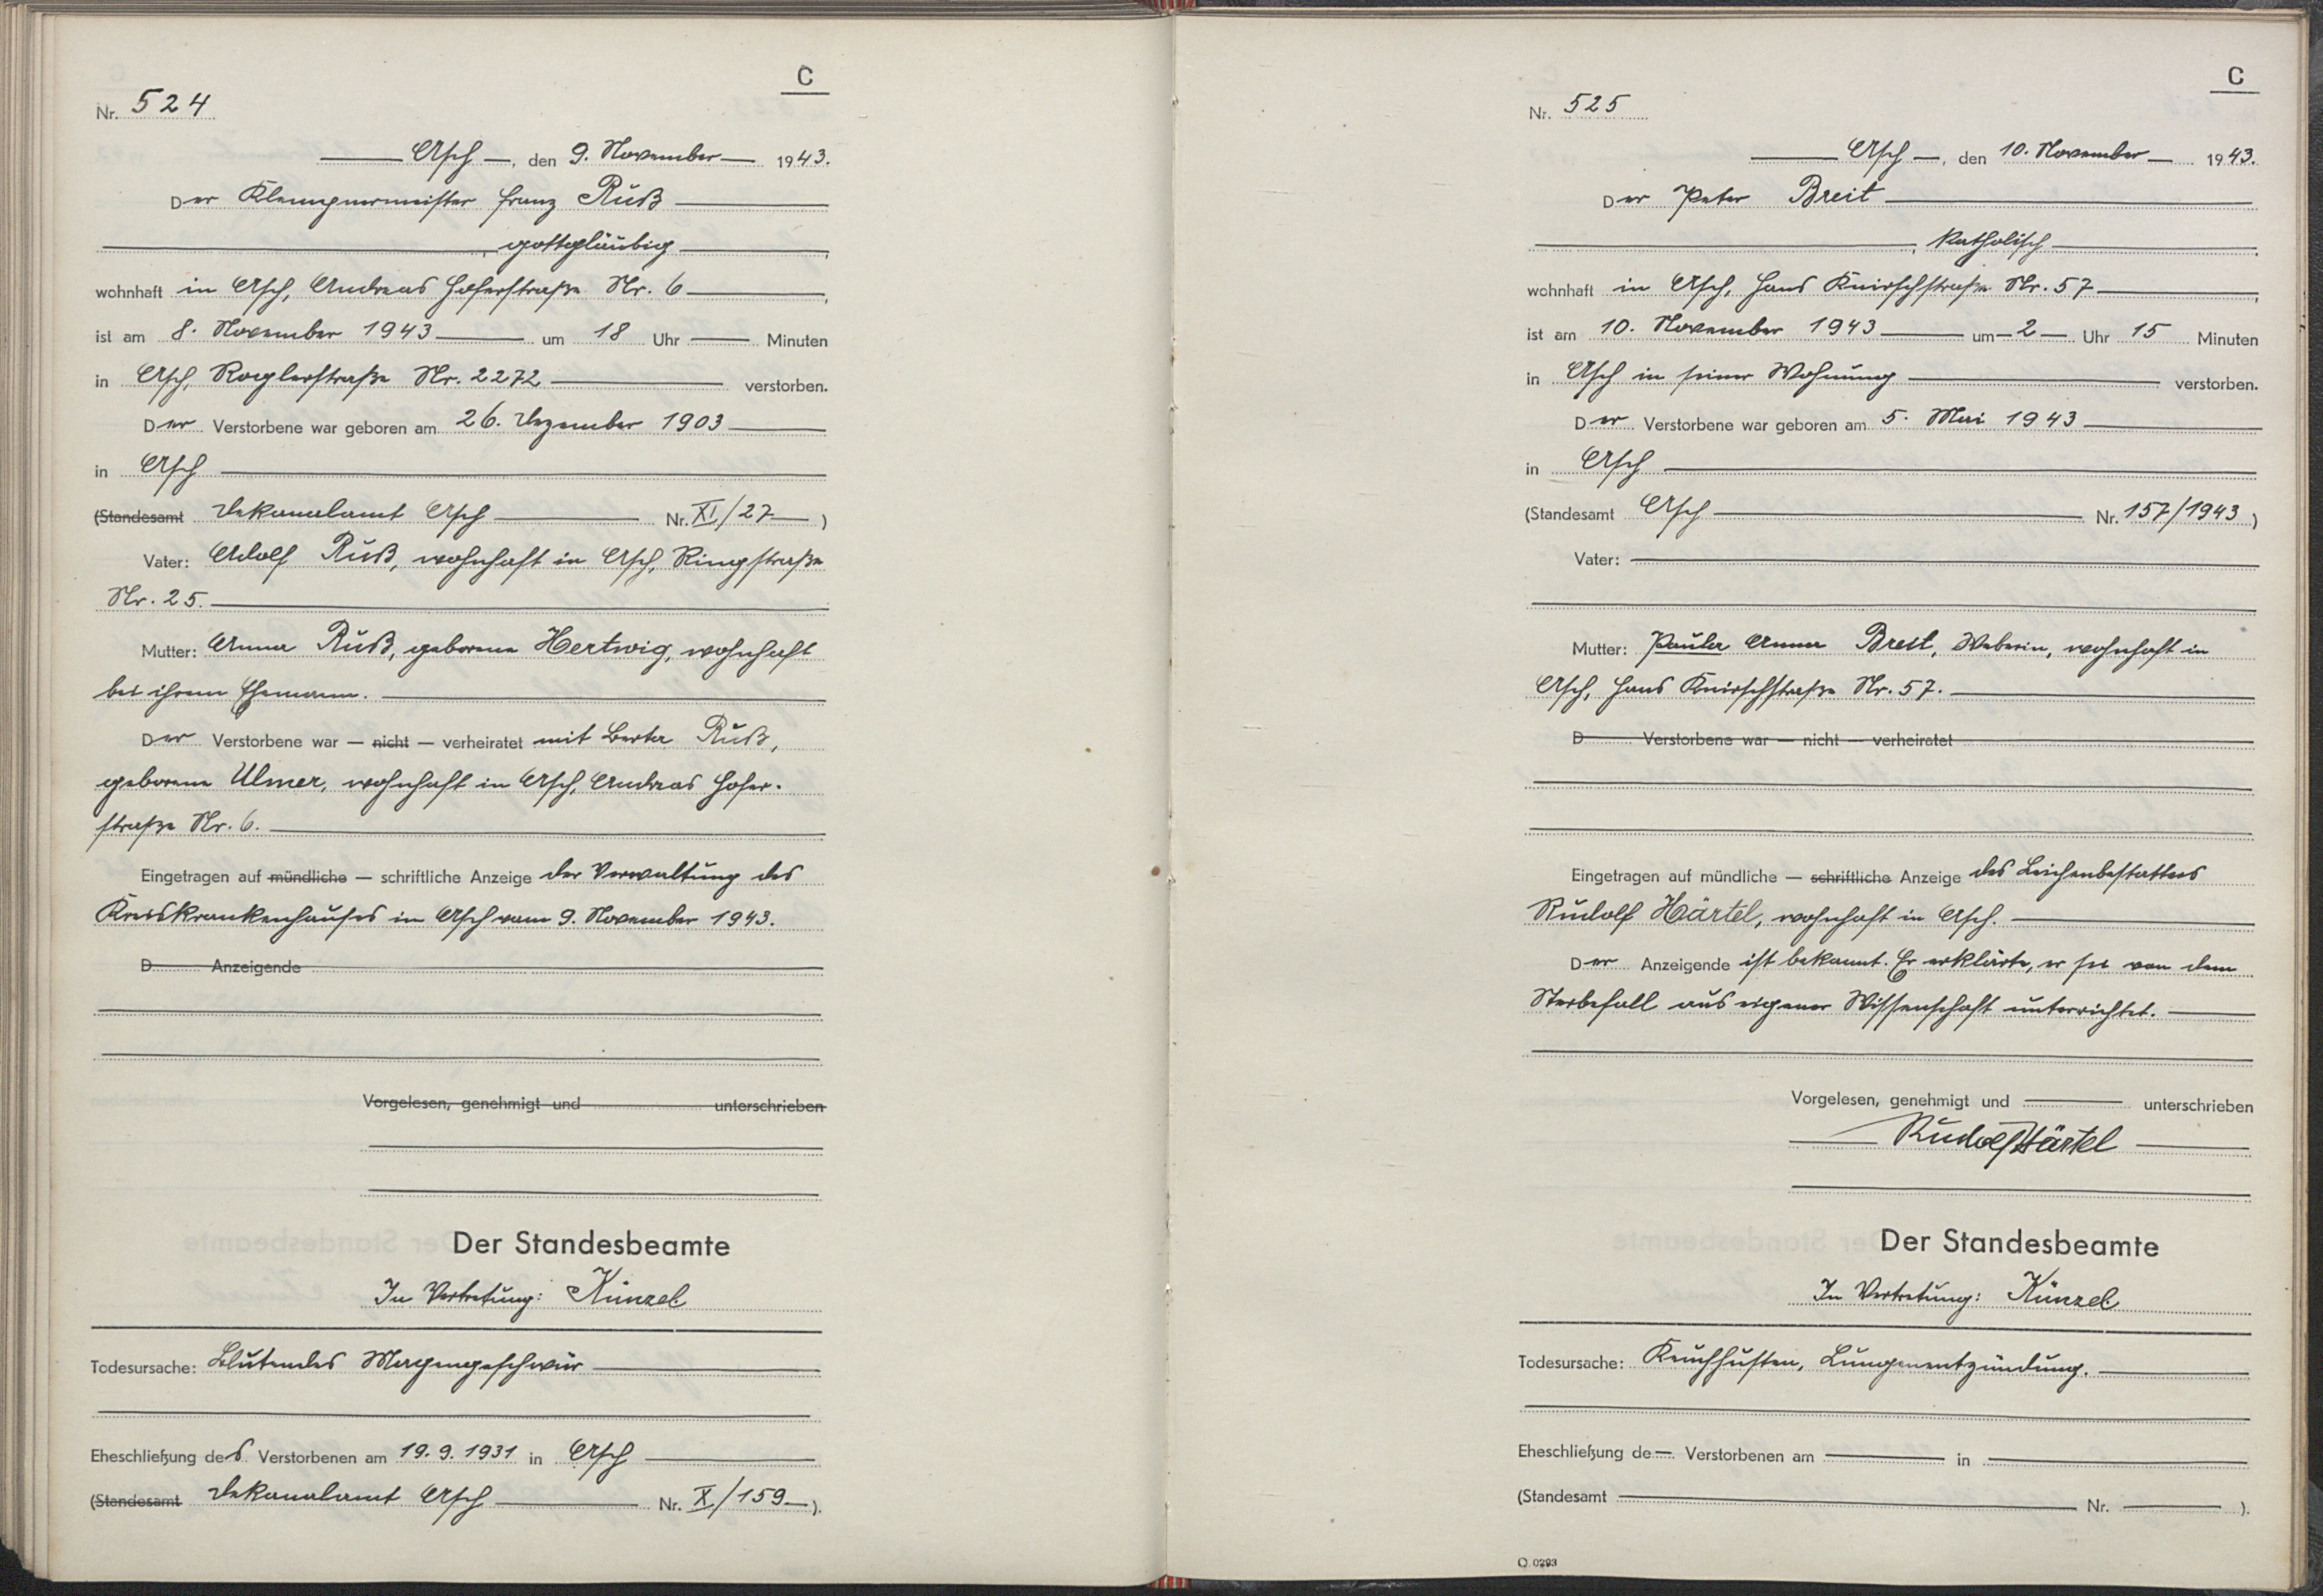 C
Nr. 524
Asch, den 9. November 1943.
Der Klempnermeister Franz Ruß
, gottgläubig,
wohnhaft in Asch, Andreas Hoferstraße Nr. 6,
ist am 8. November 1943 um 18 Uhr Minuten
in Asch, Roglerstraße Nr. 2272 verstorben.
Der Verstorbene war geboren am 26. Dezember 1903
in Asch
(Standesamt Dekanalamt Asch Nr. XI/27)
Vater: Adolf Ruß, wohnhaft in Asch, Ringstraße
Nr. 25.
Mutter: Anna Ruß, geborene Hertwig, wohnhaft
bei ihrem Ehemann.
Der Verstorbene war — nicht — verheiratet mit Berta Ruß,
geborene Ulmer, wohnhaft in Asch, Andreas Hofer-
straße Nr. 6.
Eingetragen auf mündliche — schriftliche Anzeige der Verwaltung des
Kreiskrankenhauses in Asch vom 9. November 1943.
D Anzeigende
Vorgelesen, genehmigt und unterschrieben
Der Standesbeamte
In Vertretung: Künzel
Todesursache: Blutendes Magengeschwür
Eheschließung des Verstorbenen am 19.9.1931 in Asch
(Standesamt Dekanalamt Asch Nr. X/159).
C
Nr. 525
Asch, den 10. November 1943.
Der Peter Breit
, katholisch,
wohnhaft in Asch, Hans Knirschstraße Nr. 57,
ist am 10. November 1943 um 2 Uhr 15 Minuten
in Asch in seiner Wohnung verstorben.
Der Verstorbene war geboren am 5. Mai 1943
in Asch
(Standesamt Asch Nr. 157/1943)
Vater:
Mutter: Paula Anna Breit, Weberin, wohnhaft in
Asch, Hans Knirschstraße Nr. 57.
D Verstorbene war — nicht — verheiratet
Eingetragen auf mündliche — schriftliche Anzeige des Leichenbestatters
Rudolf Härtel, wohnhaft in Asch.
Der Anzeigende ist bekannt. Er erklärte, er sei von dem
Sterbefall aus eigener Wissenschaft unterrichtet.
Vorgelesen, genehmigt und unterschrieben
Rudolf Härtel
Der Standesbeamte
In Vertretung: Künzel
Todesursache: Keuchhusten, Lungenentzündung.
Eheschließung de Verstorbenen am in
(Standesamt Nr. ).
Q. 0293